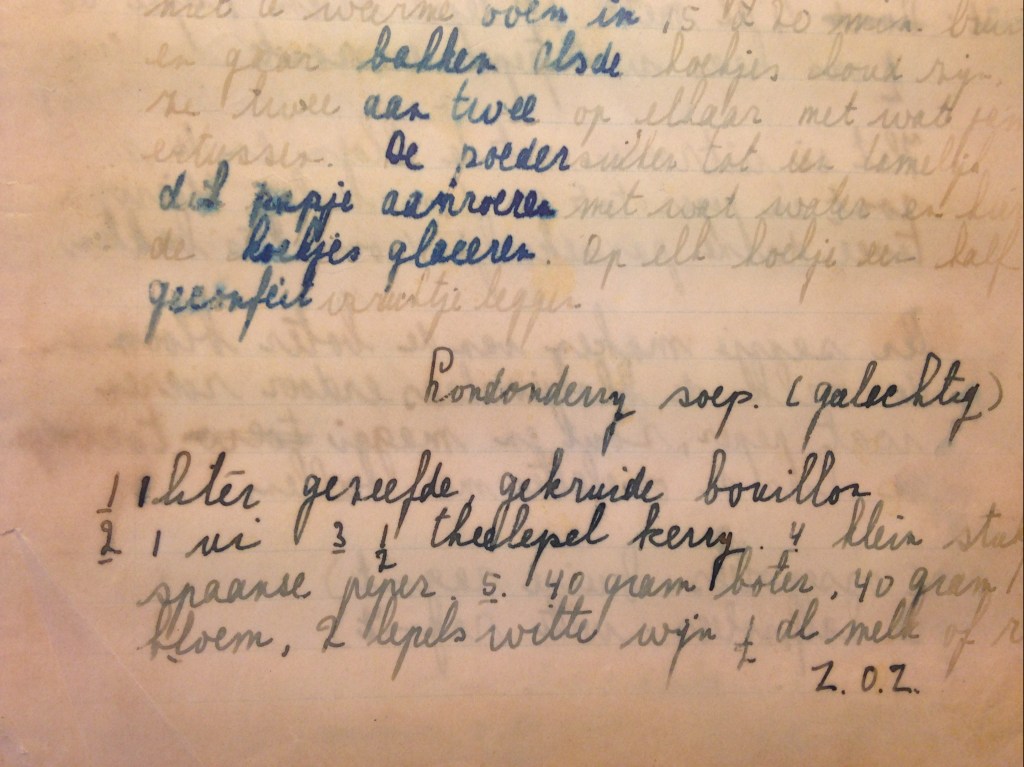 niet te warme oven in 15 à 20 min. bruin
en gaar bakken Als de koekjes koud zijn,
ze twee aan twee op elkaar met wat jam
ertussen. De poeder suiker tot een tamelijk
dik papje aanroeren met wat water en hier
de koekjes glaceren. Op elk koekje een half
geconfeit vruchtje leggen
Londonderry soep. (geelachtig)
1 1 liter gezeefde, gekruide bouillon
2 1 ui 3 1/2 theelepel kerry. 4 klein stuk
spaanse peper. 5. 40 gram boter, 40 gram
bloem, 2 lepels witte wijn 1/2 dl melk of
Z.O.Z.